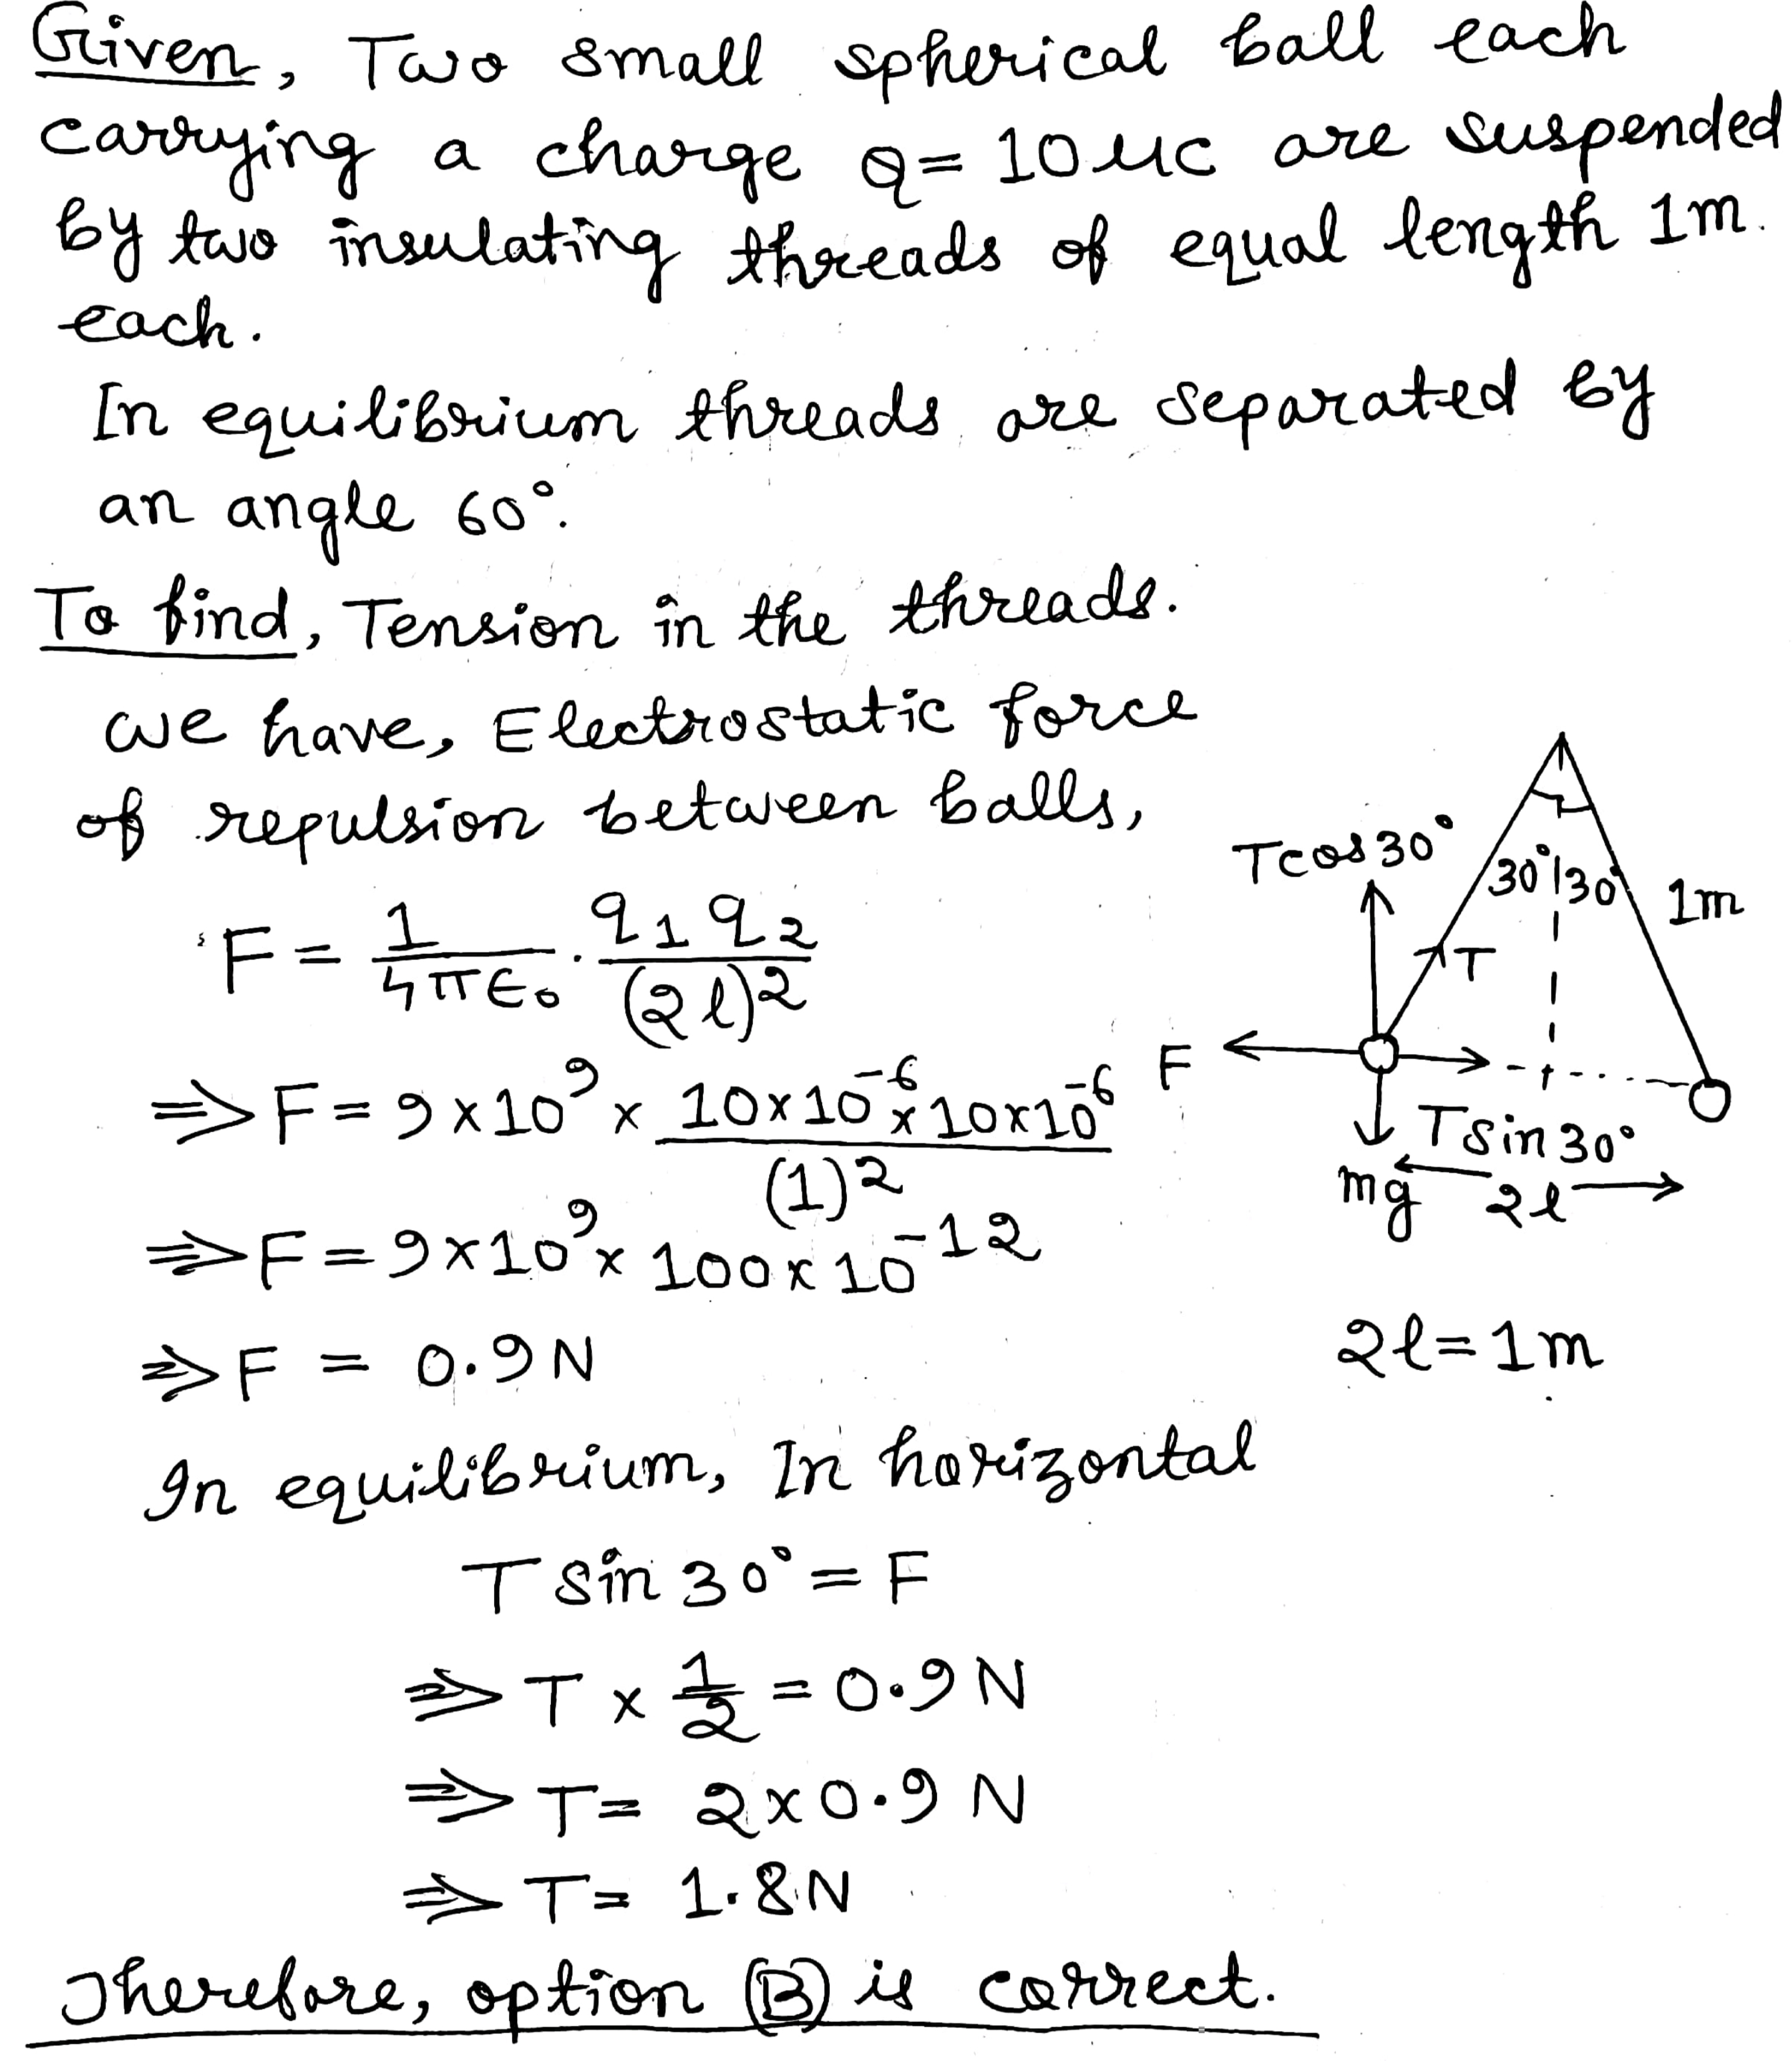 Given, Two small spherical ball each
carrying a charge Q = 10 μc are suspended
by two insulating threads of equal length 1m.
each.
In equilibrium threads are separated by
an angle 60°.
To find, Tension in the threads.
we have, Electrostatic force
of repulsion between balls,
F = 1/4πϵ₀ · q₁q₂/(2l)²
⇒ F = 9 x 10⁹ x 10x10⁻⁶ x 10x10⁻⁶/(1)²
⇒ F = 9x10⁹ x 100 x 10⁻¹²
⇒ F = 0.9 N
Tcos30°
30° 30°
1m
T
F
Tsin30°
mg
2l
2l = 1m
In equilibrium, In horizontal
T sin 30° = F
⇒ T x 1/2 = 0.9 N
⇒ T = 2x0.9 N
⇒ T = 1.8 N
Therefore, option (B) is correct.